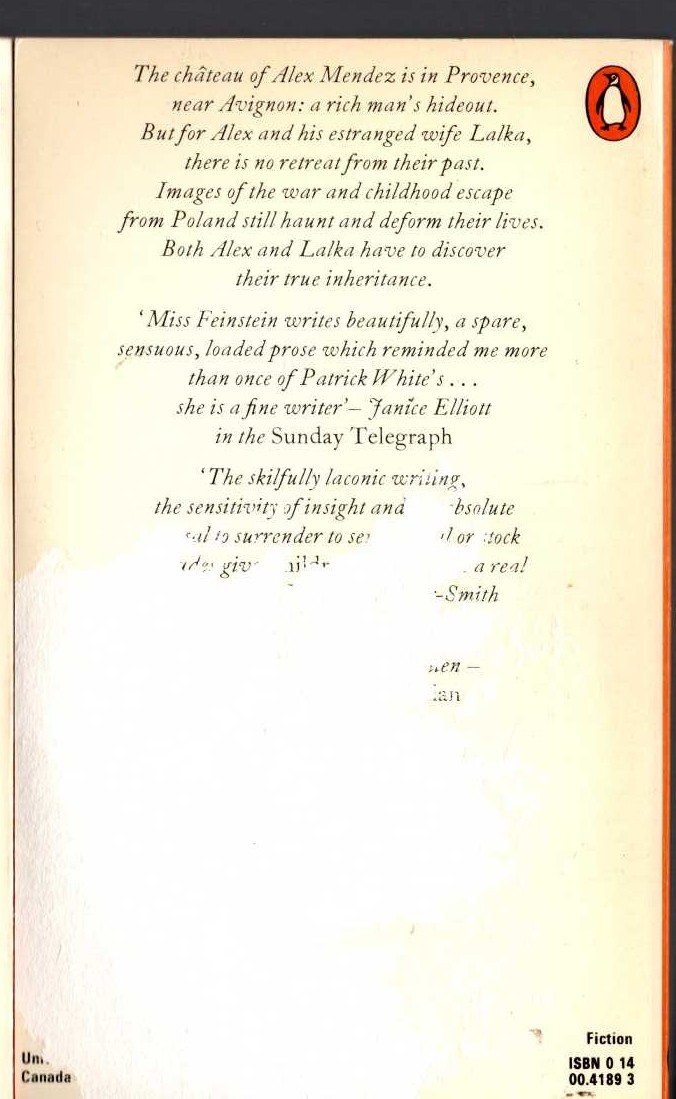 The château of Alex Mendez is in Provence,
near Avignon: a rich man's hideout.
But for Alex and his estranged wife Lalka,
there is no retreat from their past.
Images of the war and childhood escape
from Poland still haunt and deform their lives.
Both Alex and Lalka have to discover
their true inheritance.
'Miss Feinstein writes beautifully, a spare,
sensuous, loaded prose which reminded me more
than once of Patrick White's . . .
she is a fine writer' – Janice Elliott
in the Sunday Telegraph
'The skilfully laconic writing,
the sensitivity of insight and
to surrender to or stock
a real
-Smith
Fiction
ISBN 0 14
Canada
00.4189 3